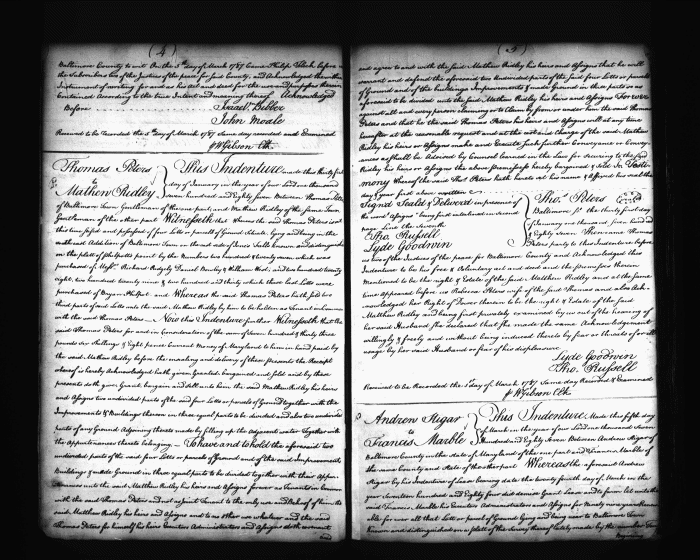 (4)
Baltimore County to wit On the 5th day of March 1787 Came Philip before
the Subscribers two of the Justices of the peace for said County, and Acknowledged the within
Instrument of writing for and as his Act and deed for the use and purposes therein
Contained According to the true Intent and meaning thereof Acknowledged
Before
Bibber
John Moale
Received to be Recorded the 5th day of March 1787 Same day recorded and Examined
W Gibson Clk.
Thomas Peters
to
Mathew Ridley
This Indenture made this thirty first
day of January in the year of our Lord one thousand
seven hundred and Eighty Seven Between Thomas Peters
of Baltimore Town Gentleman of the one part and Mathew Ridley of the same Town
Gentleman of the other part Witnesseth that Whereas the said Thomas Peters is at
this time seized and possessed of four Lotts or parcels of Ground Situate Lying and being in the
Addition of Baltimore Town on the east side of Jones Falls known and distinguished
on the platt of by the Numbers two hundred & twenty seven which was
purchased of Messrs Richard Ridgely Daniel Bowly & William West, and two hundred twenty
eight, two hundred twenty nine & two hundred and thirty which three last Lotts were
purchased of Bryan Philpot, and Whereas the said Thomas Peters hath sold two
third parts of said Lotts unto the said Mathew Ridley by him to be holden as Tenant in Common
with the said Thomas Peters Now this Indenture further Witnesseth that the
said Thomas Peters for and in Consideration of the sum of Seven hundred & thirty three
pounds six Shillings & Eight pence Current Money of Maryland to him in hand paid by
the said Mathew Ridley before the ensealing and delivery of these presents the Receipt
whereof is hereby Acknowledged hath given Granted, bargained and sold and by these
presents do th give Grant bargain and sell unto him the said Matthew Ridley his heirs
and Assigns two undivided parts of the said four Lotts or parcels of Ground together with the
Improvements & Buildings thereon in three equal parts to be divided and also two undivided
parts of any Ground Adjoining thereto made by filling up the Adjacent water Together with
the Appurtenances thereto belonging To have and to hold the aforesaid two
undivided parts of the said four Lotts or parcels of Ground and of the said Improvements
Buildings & made Ground in three equal parts to be divided together with their Appur-
tenances unto the said Matthew Ridley his heirs and Assigns forever as Tenants in Common
with the said Thomas Peters and not as Joint Tenant to the only use and Behoof of him the
said Matthew Ridley his heirs and Assigns and to no Other use whatever and the said
Thomas Peters for himself his heirs Executors Administrators and Assigns doth covenant
and
(5)
and agree to and with the said Mathew Ridley his heirs and Assigns that he will
warrant and defend the aforesaid two Undivided parts of the said four Lotts or parcels
of Ground and of the buildings Improvements & made Ground in three parts as
aforesaid to be divided unto the said Matthew Ridley his heirs and Assigns For ever
against all and every person Claiming or to Claim by from or under him the said Thomas
Peters and that he the said Thomas Peters his heirs and Assigns will at any time
hereafter at the reasonable request and at the cost and charge of the said Mathew
Ridley his heirs or Assigns make and Execute such further Conveyance or Convey-
ances as shall be Advised by Counsel learned in the Law for Securing to the said
Ridley his heirs or Assigns the above premises hereby bargained & sold In Testi-
mony Whereof the said Thos Peters hath hereto set his name & affixed his seal the
day & year first above written
Signd Seald & Deliverd in presence of
the word "Assigns" being first interlined in Second
page Line the Seventh
Tho. Russell
Lyde Goodwin
Thos. Peters
Baltimore ss. the thirty first day
of January one thousand seven hundred
& Eighty Seven Then came Thomas
Peters party to this Indenture before
us two of the Justices of the peace for Baltimore County and Acknowledged this
Indenture to be his free & Voluntary act and deed and the premises therein
Mentioned to be the right & Estate of the said Matthew Ridley and at the same
time appeared before us Rebecca Peters wife of the said Thomas and also Ack-
nowledged her Right of Dower therein to be the right & Estate of the said
Matthew Ridley and being first privately examined by us out of the hearing of
her said Husband she declared that she made the same Acknowledgement
willingly & freely and without being induced thereto by fear or threats of or ill
usage by her said Husband or fear of his displeasure
Lyde Goodwin
Tho. Russell
Received to be Recorded the 1st day of March 1787 Same day Recorded & Examined
W Gibson Clk
Andrew Stigar
to
Francis Marble
This Indenture Made this fifth day
of March in the year of our Lord one thousand Seven
Hundred and Eighty Seven Between Andrew Stigar of
Baltimore County in the State of Maryland of the one part and Francis Marble of
the same County and State of the other part Whereas the aforesaid Andrew
Stigar by his Indenture of Lease bearing date the twenty fourth day of March in the
year Seventeen hundred and Eighty four did demise Grant Lease and to farm let unto the
said Francis Marble his Executors Administrators and Assigns for Ninety nine years Renew-
able for ever all that Lott or parcel of Ground lying and being near to Baltimore Town
known and distinguished on a platt of the Survey thereof lately made by the number
Beginning